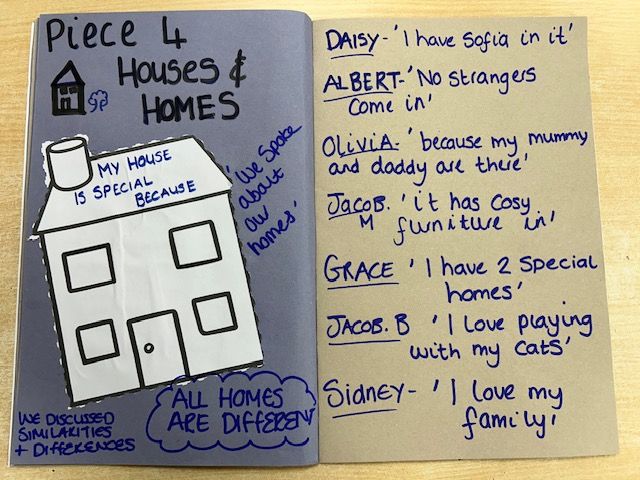 Piece 4
HOUSES &
HOMES
MY HOUSE
IS SPECIAL
BECAUSE
'We spoke
about
our
homes'
WE DISCUSSED
SIMILARITIES
+ DIFFERENCES
ALL HOMES
ARE DIFFERENT
DAISY - 'I have Sofia in it'
ALBERT - 'No strangers
come in'
OliviA - 'because my mummy
and daddy are there'
JACOB. 'it has cosy
M furniture in'
GRACE 'I have 2 special
homes'
JACOB. B 'I love playing
with my cats'
Sidney - 'I love my
family'